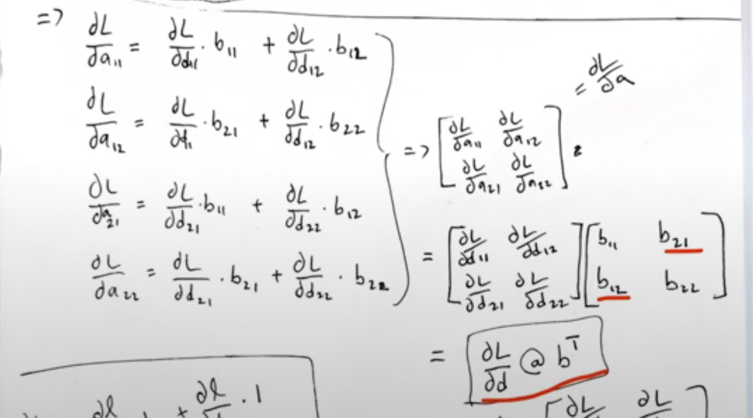 => ∂L/∂a₁₁ = ∂L/∂d₁₁ · b₁₁ + ∂L/∂d₁₂ · b₁₂
∂L/∂a₁₂ = ∂L/∂d₁ · b₂₁ + ∂L/∂d₁₂ · b₂₂
∂L/∂a₂₁ = ∂L/∂d₂₁ · b₁₁ + ∂L/∂d₂₂ · b₁₂
∂L/∂a₂₂ = ∂L/∂d₂₁ · b₂₁ + ∂L/∂d₂₂ · b₂₂
= ∂L/∂a
=> [ ∂L/∂a₁₁ ∂L/∂a₁₂
∂L/∂a₂₁ ∂L/∂a₂₂ ]
= [ ∂L/∂d₁₁ ∂L/∂d₁₂ ] [ b₁₁ b₂₁
∂L/∂d₂₁ ∂L/∂d₂₂ ] b₁₂ b₂₂ ]
= ∂L/∂d @ bᵀ